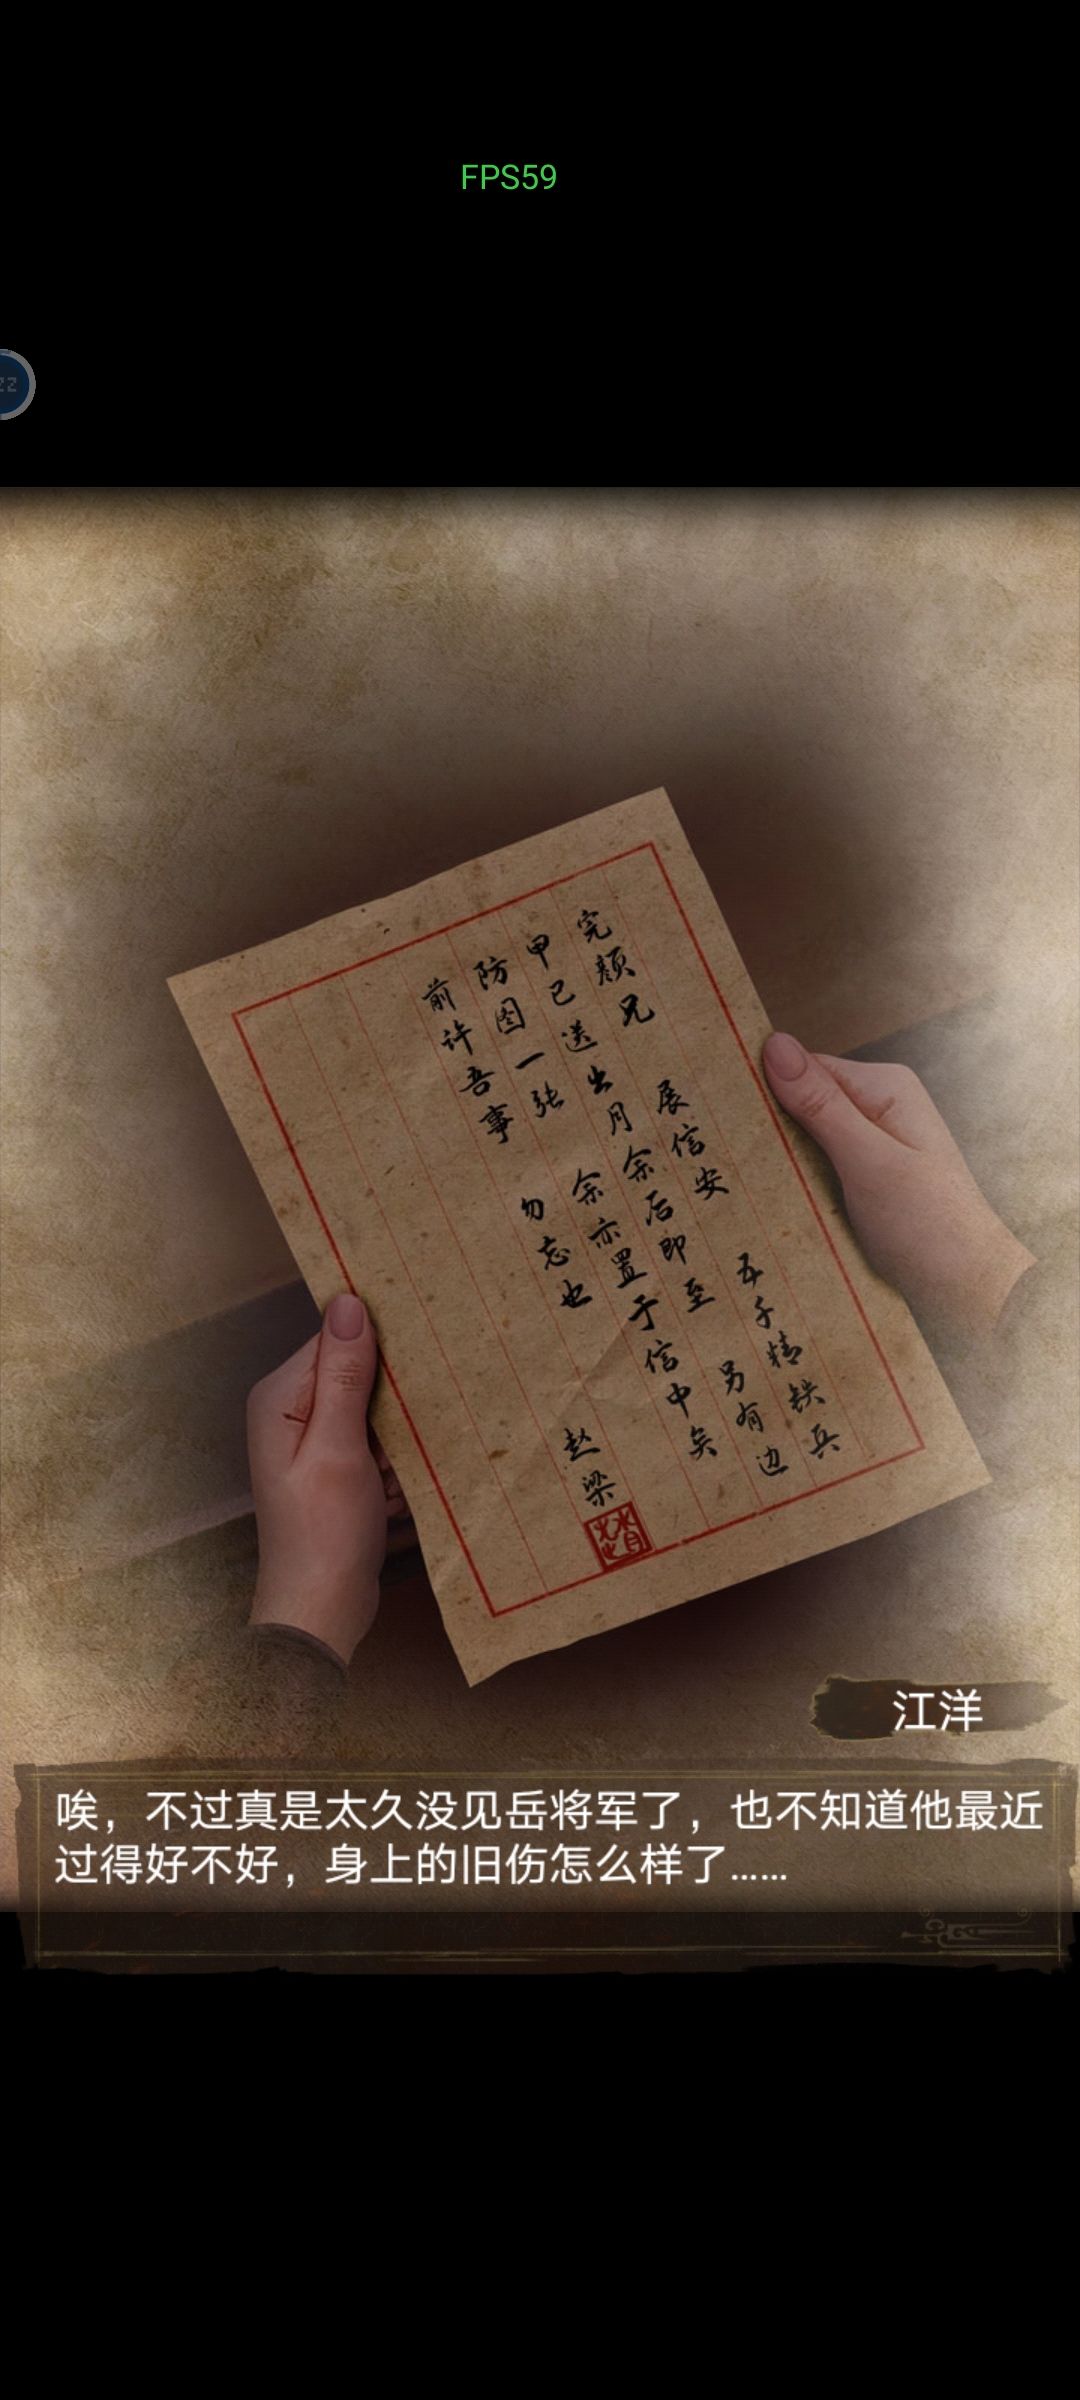 FPS59
zz
完颜兄 展信安 五千精铁兵
甲已送出月余后即至 另有边
防图一张 余亦置于信中矣
前许吾事 勿忘也 赵梁
江洋
唉，不过真是太久没见岳将军了，也不知道他最近
过得好不好，身上的旧伤怎么样了……